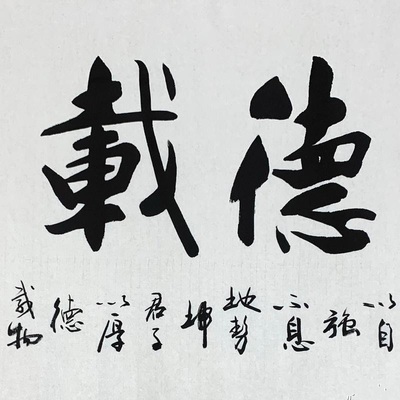 德載
以自
強
不息
地勢
坤
君子
以厚
德
載物